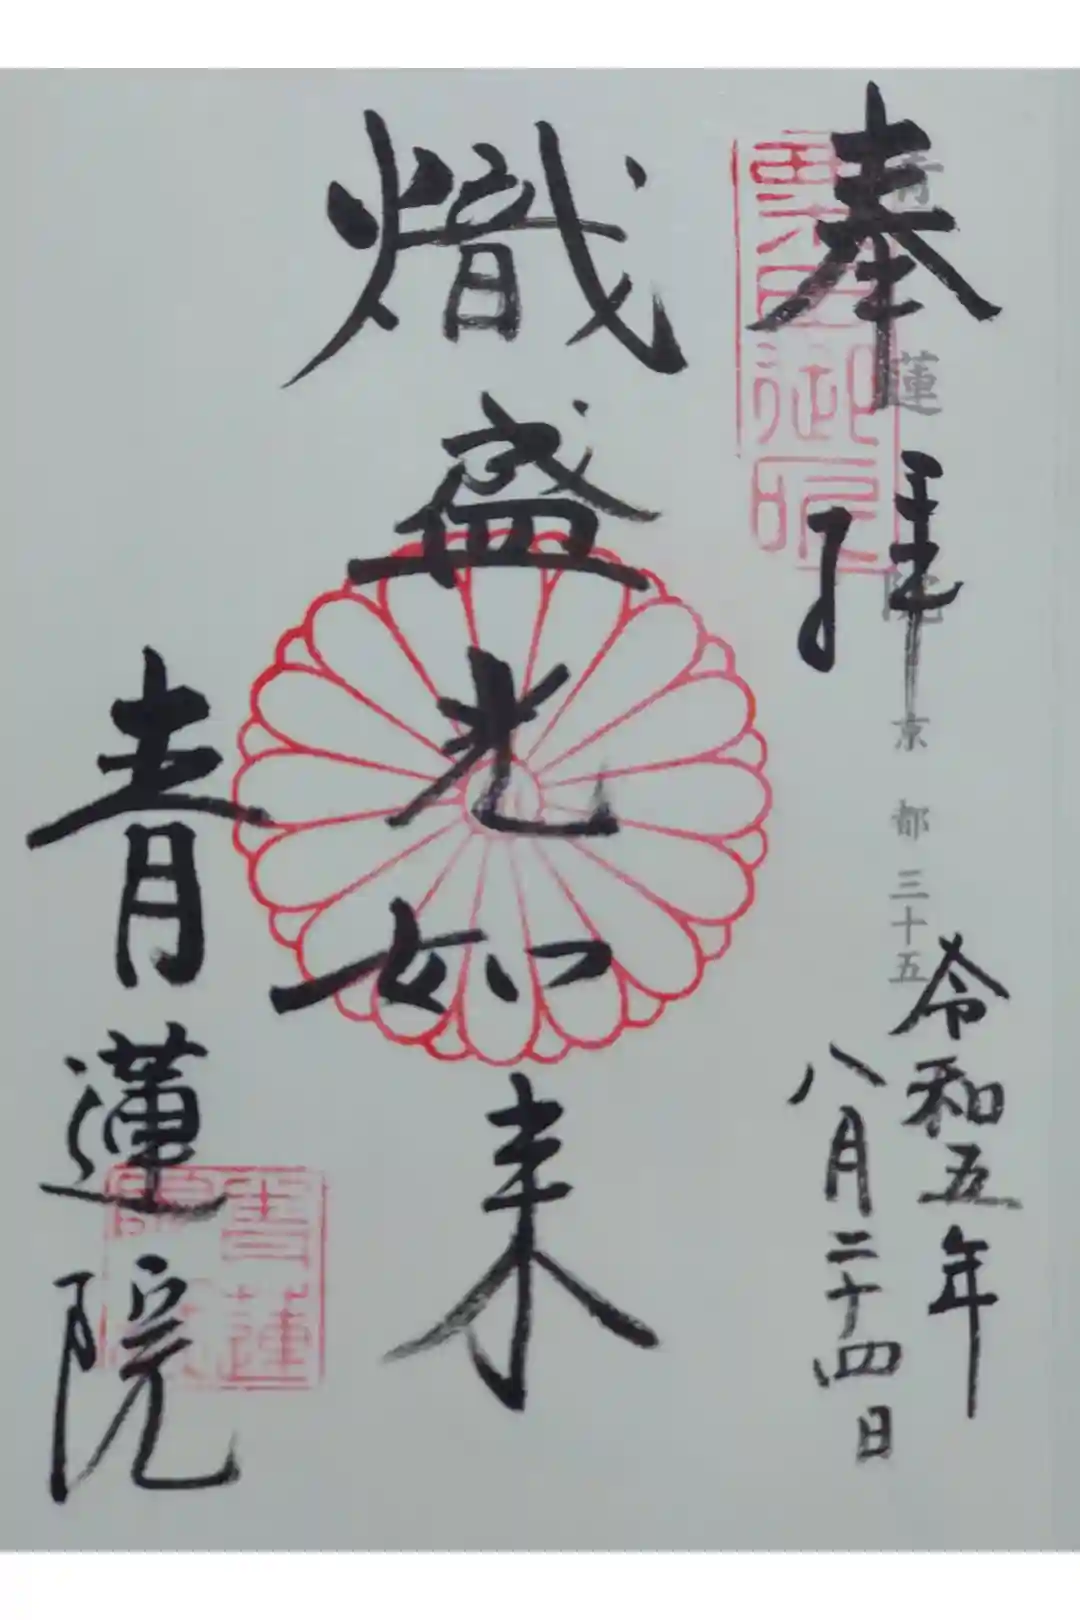 奉拝
青蓮院
京都三十五
粟田御所
令和五年
八月二十四日
熾盛光如来
青蓮院